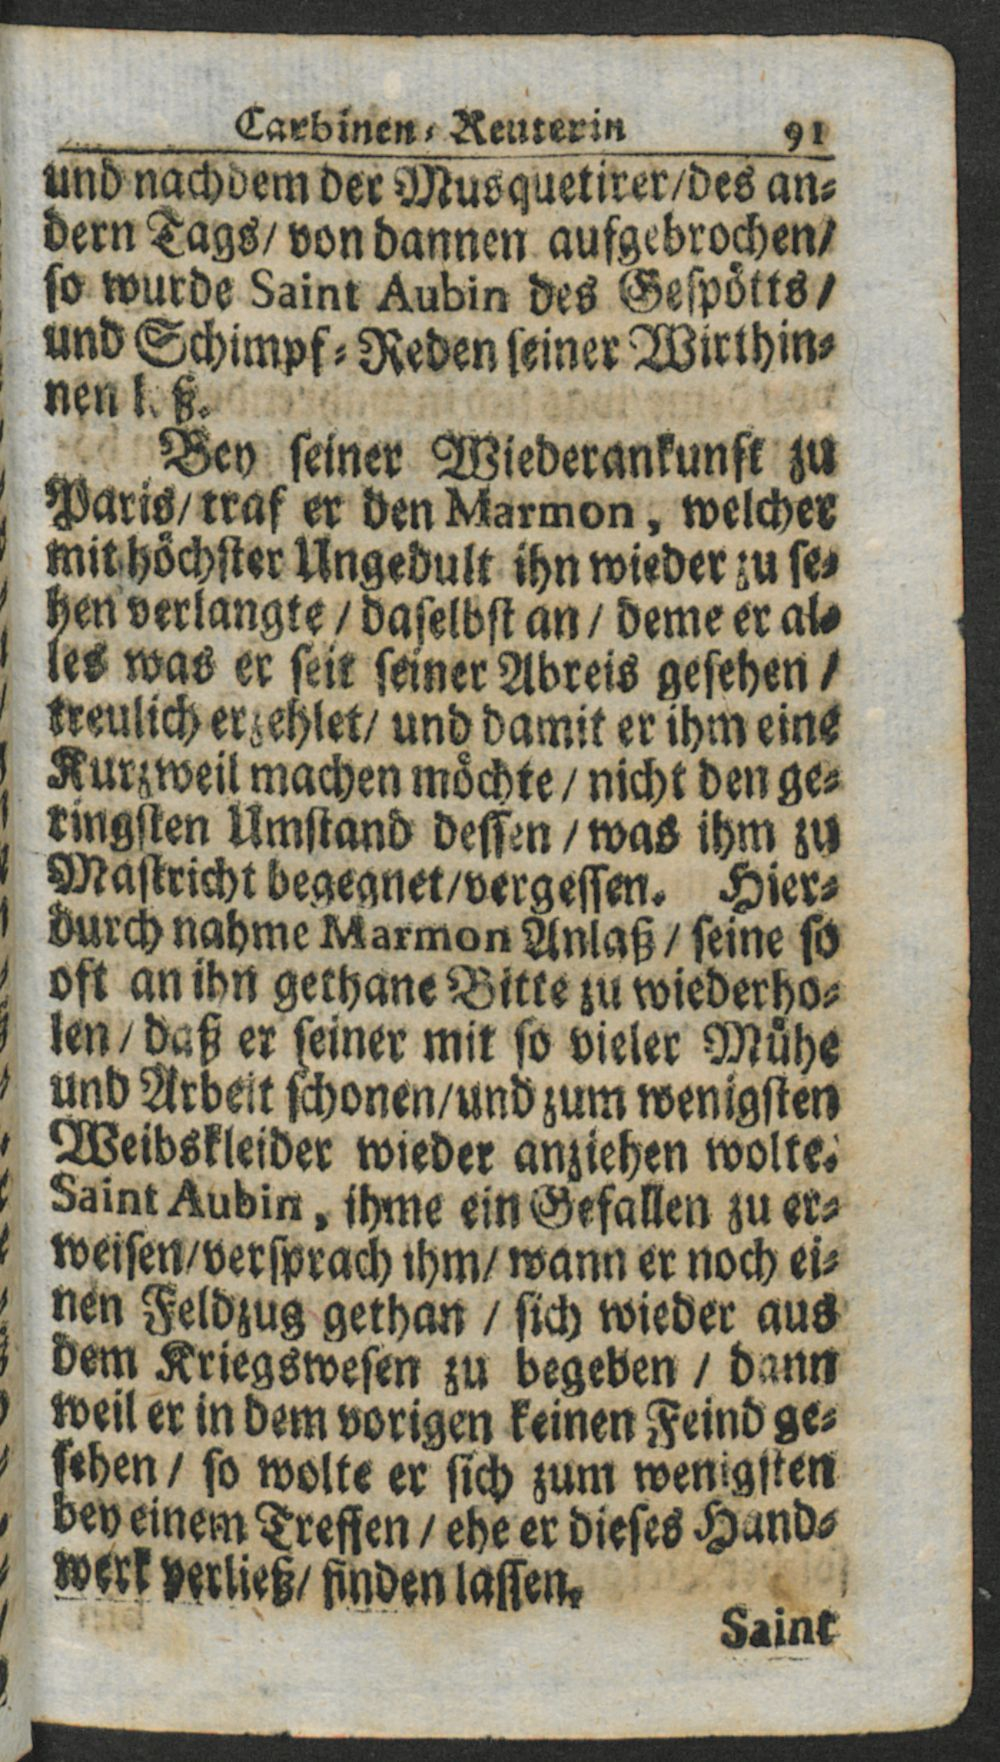 Carbinen-Reuterin 91
und nachdem der Musquetirer/des an-
dern Tags/ von dannen aufgebrochen/
so wurde Saint Aubin des Gespötts/
und Schimpf-Reden seiner Wirthin-
nen
Bey seiner Wiederankunft zu
Paris/ traf er den Marmon, welcher
mit höchster Ungedult ihn wieder zu se-
hen verlangte / daselbst an / deme er al-
les was er seit seiner Abreis gesehen /
treulich erzehlet/ und damit er ihm eine
Kurzweil machen möchte / nicht den ge-
ringsten Umstand dessen / was ihm zu
Mastricht begegnet/vergessen. Hier-
durch nahme Marmon Anlaß / seine so
oft an ihn gethane Bitte zu wiederho-
len / daß er seiner mit so vieler Mühe
und Arbeit schonen/und zum wenigsten
Weibskleider wieder anziehen wolte.
Saint Aubin, ihme ein Gefallen zu er-
weisen/versprach ihm/ wann er noch ei-
nen Feldzug gethan / sich wieder aus
dem Kriegswesen zu begeben / dann
weil er in dem vorigen keinen Feind ge-
sehen / so wolte er sich zum wenigsten
bey einem Treffen / ehe er dieses Hand-
werk verließ/ finden lassen.
Saint